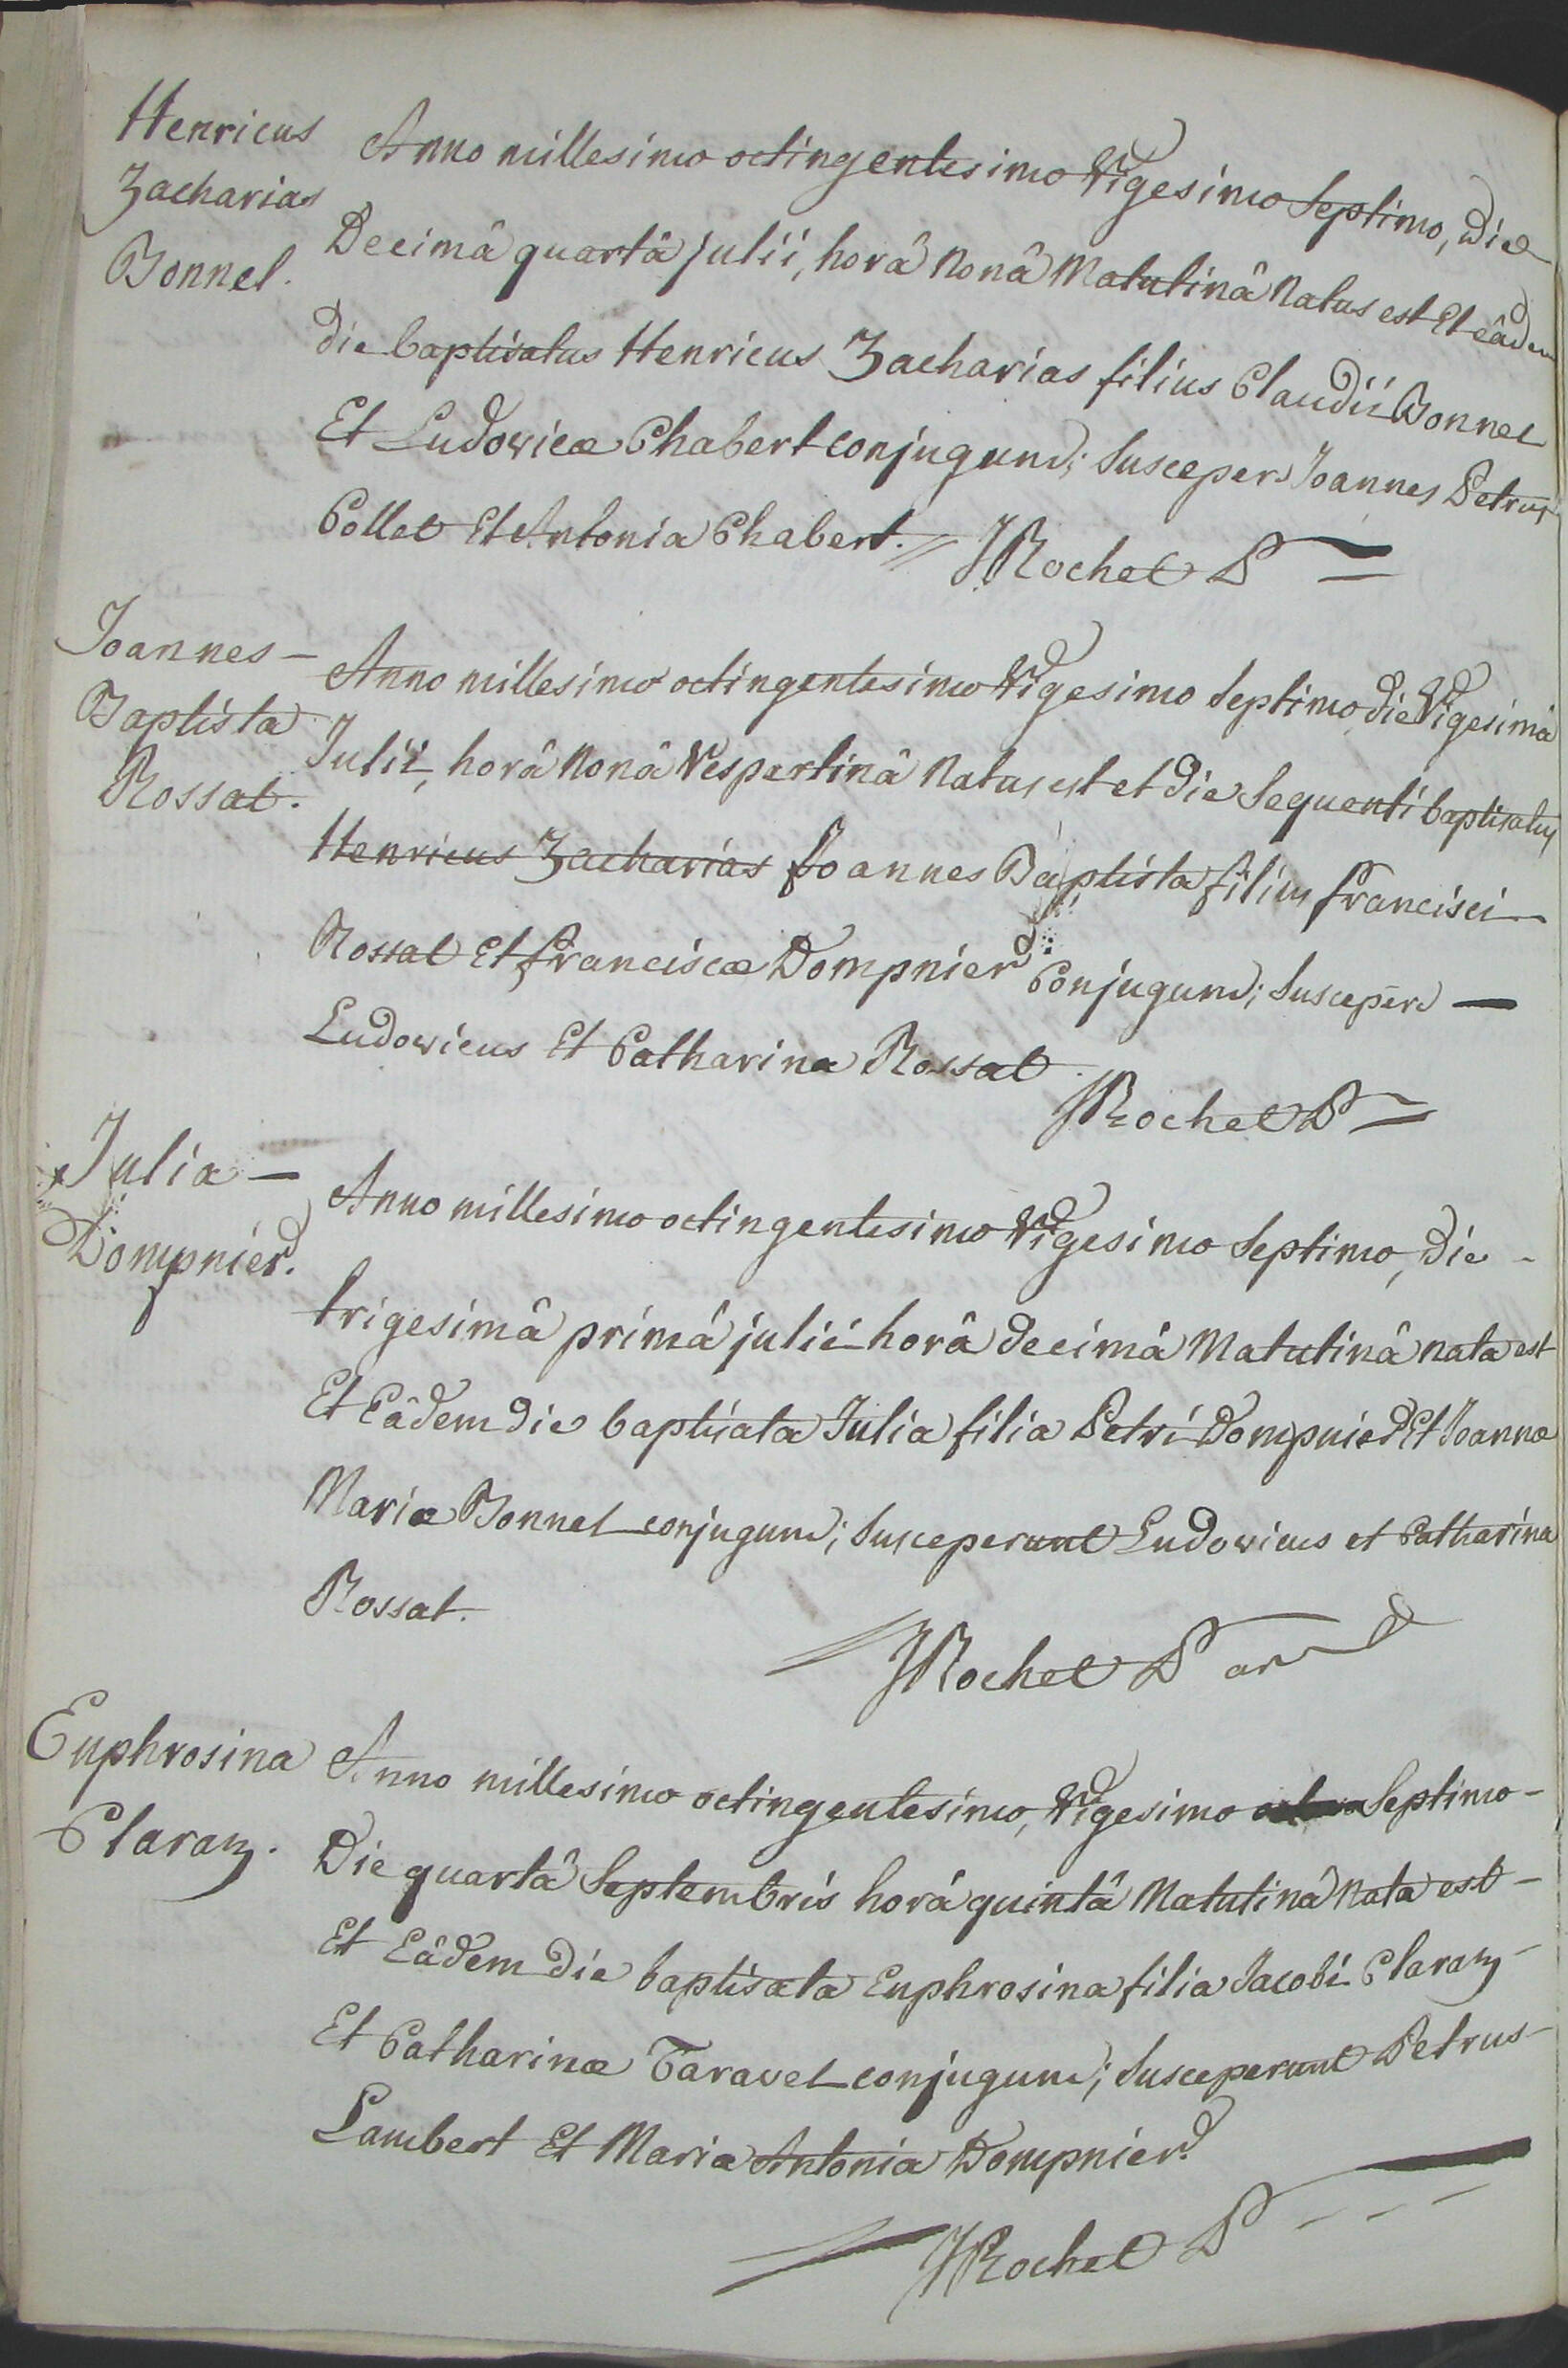 Henricus
Zacharias
Bonnel.
Anno millesimo octingentesimo Vigesimo Septimo, die
Decimâ quartâ julii, horâ Nonâ Matutinâ Natus est Et eâdem
die baptisatus Henricus Zacharias filius Claudii Bonnel
Et Ludovicæ Chabert conjugum; Susceper. Joannes Petrus
Collet Et Antonia Chabert.
JRochet P
Joannes –
Baptista
Rossat.
Anno millesimo octingentesimo Vigesimo Septimo, die Vigesimâ
Julii, horâ Nonâ Vespertinâ Natus est et die Sequenti baptisatus
Henricus Zacharias Joannes Baptista filius francisci
Rossat Et franciscæ Dompnier Conjugum; Susceper. —
Ludovicus Et Catharina Rossat.
JRochet P
Julia –
Dompnier.
Anno millesimo octingentesimo Vigesimo Septimo, die -
trigesimâ primâ julii horâ decimâ Matutinâ nata est
Et Eâdem die baptisata Julia filia Petri Dompnier Et Joannæ
Mariæ Bonnel conjugum; Susceperunt Ludovicus et Catharina
Rossat.
JRochet P
Euphrosina
Claraz.
Anno millesimo octingentesimo, Vigesimo Septimo -
Die quartâ Septembris horâ quintâ Matutinâ Nata est -
Et Eâdem die baptisata Euphrosina filia Jacobi Claraz -
Et Catharinæ Taravel conjugum; Susceperunt Petrus -
Lambert Et Maria Antonia Dompnier.
JRochet P